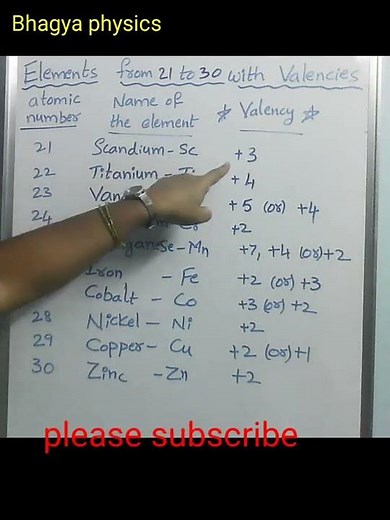 Bhagya physics
Elements from 21 to 30 with Valencies
atomic number Name of the element * Valency *
21 Scandium - Sc +3
22 Titanium - Ti +4
23 Van +5 (or) +4
24 +2
Se - Mn +7, +4 (or) +2
Iron - Fe +2 (or) +3
Cobalt - Co +3 (or) +2
28 Nickel - Ni +2
29 Copper - Cu +2 (or) +1
30 Zinc - Zn +2
please subscribe